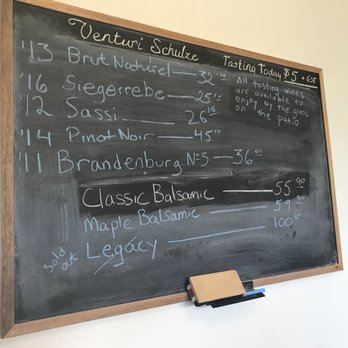 Venturi Schulze
Tasting Today $5 + GST
All tasting wines
are available to
enjoy by the glass
on the patio
'13 Brut Naturel — 32
'16 Siegerrebe — 25
'12 Sassi — 26
'14 Pinot Noir — 45
'11 Brandenburg No3 — 36
Classic Balsamic — 55
Maple Balsamic — 59
sold out Legacy — 100